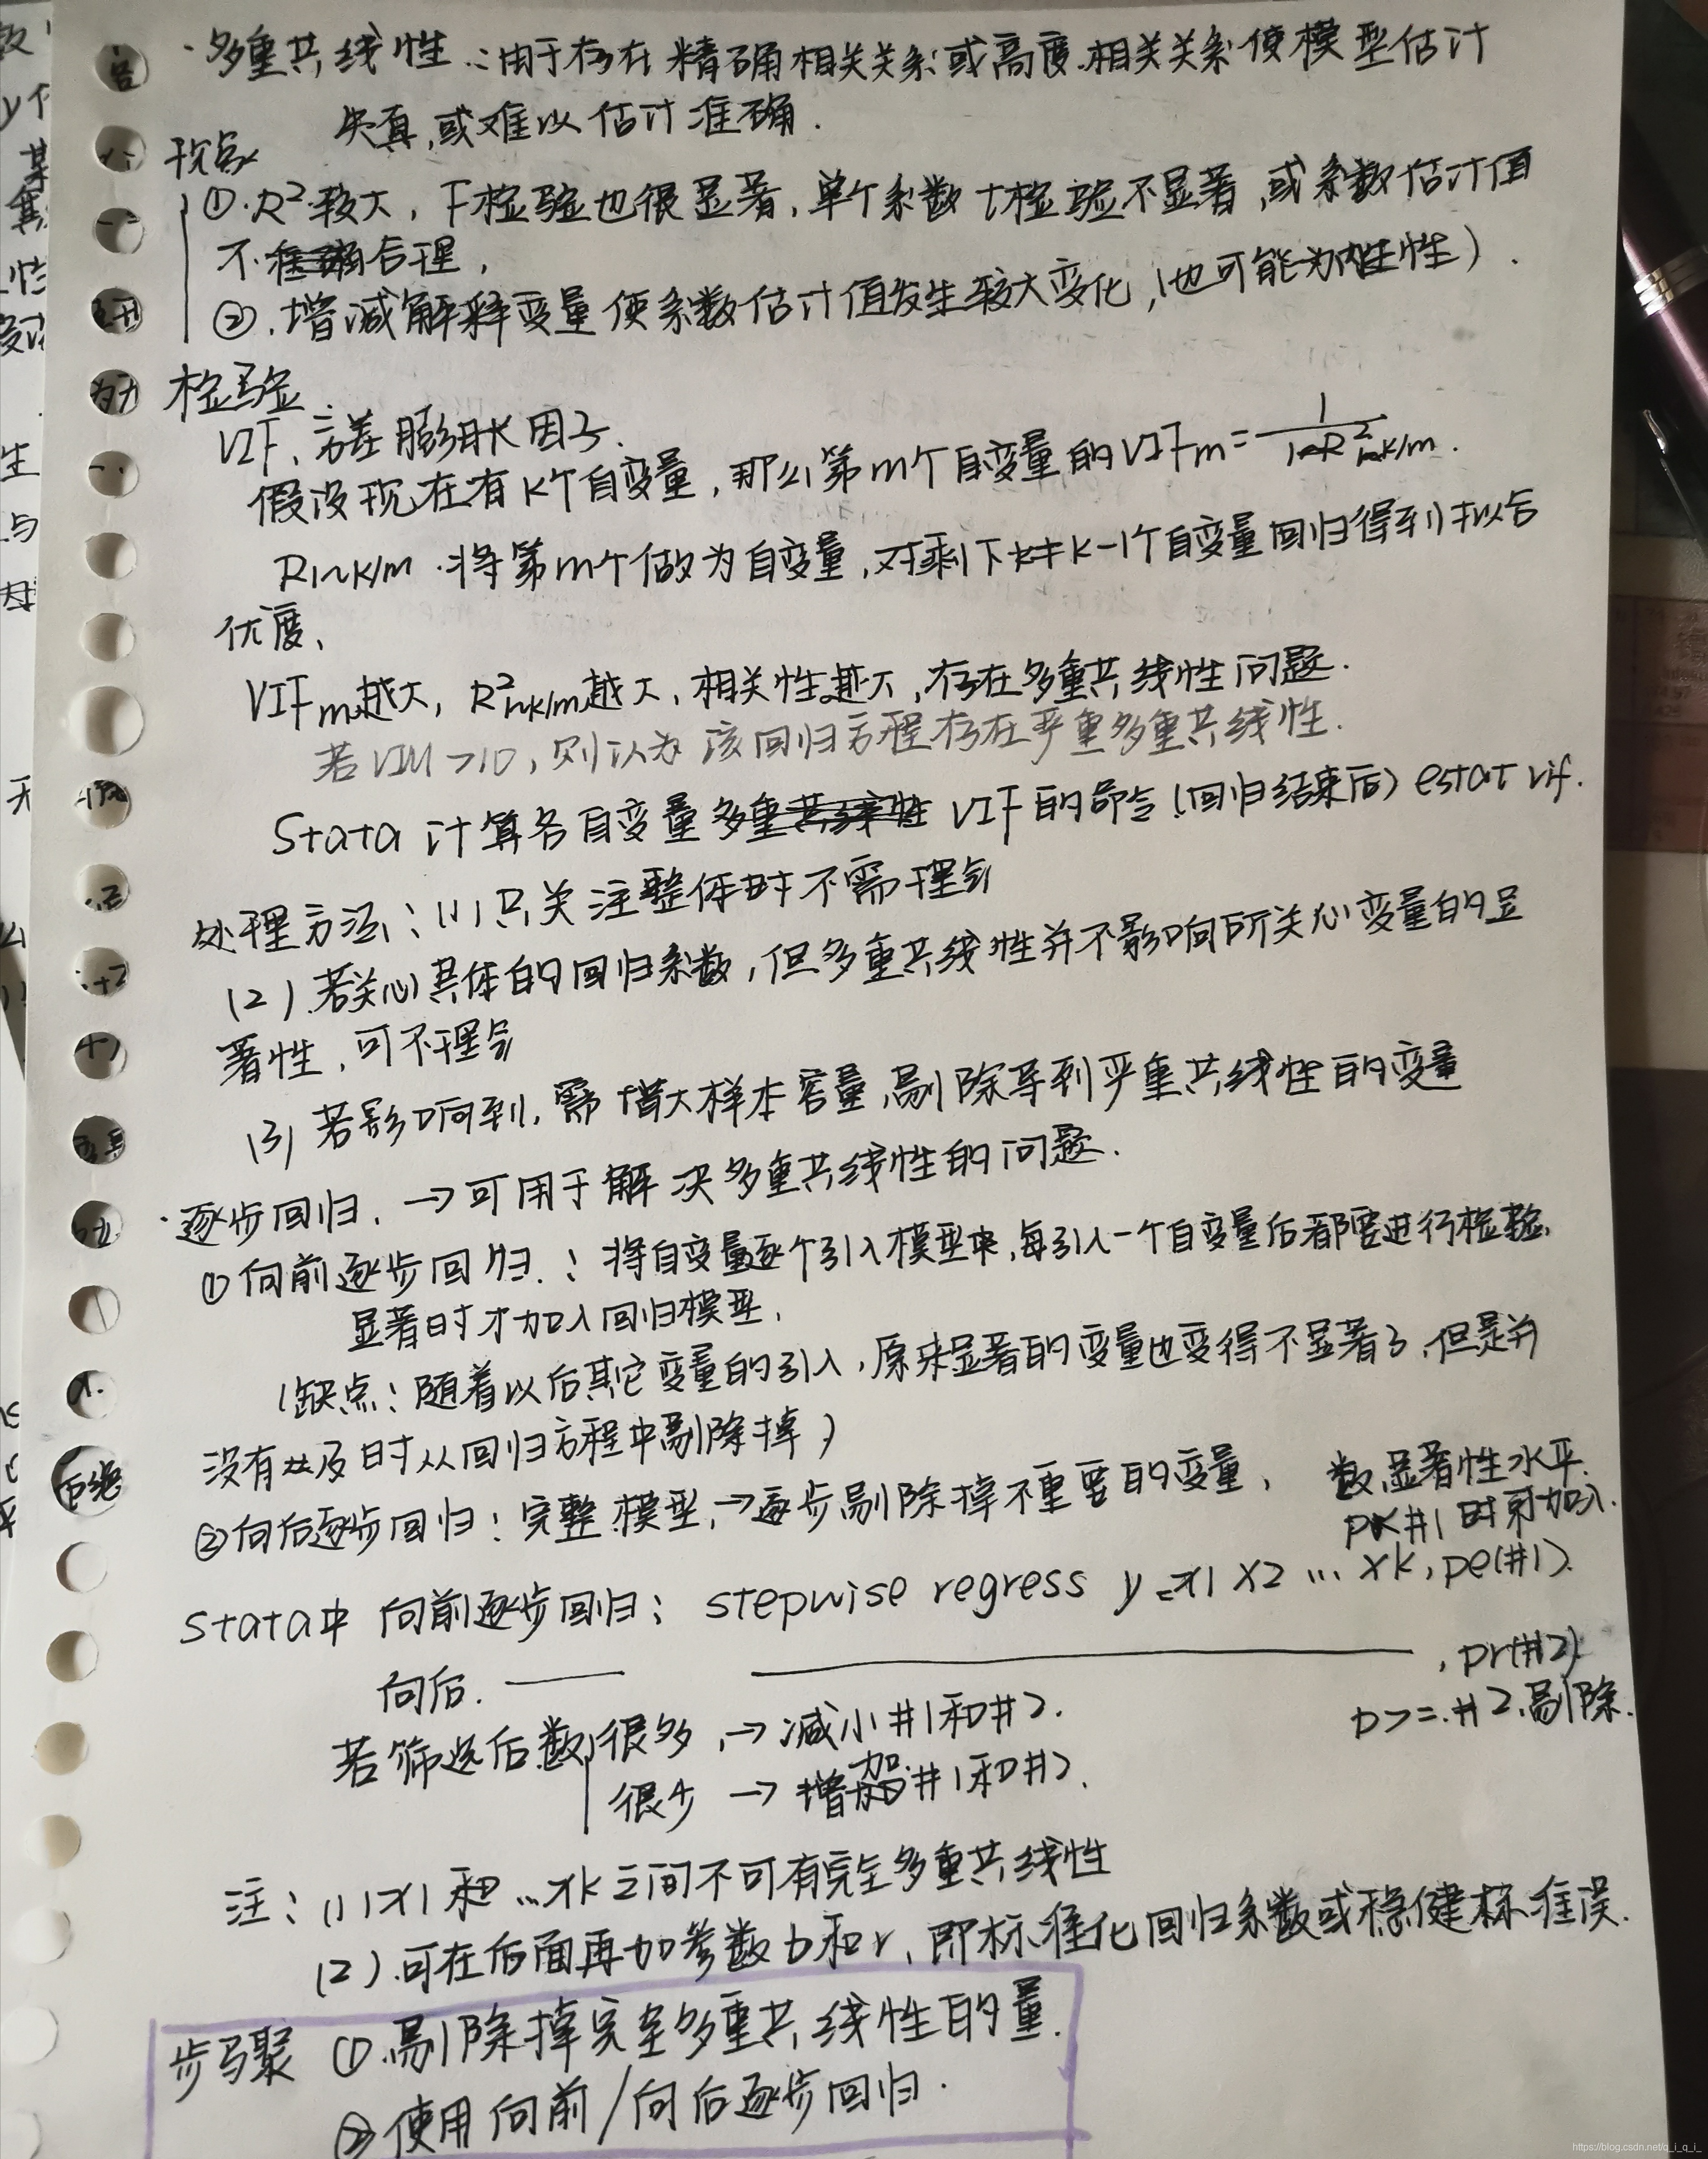 ·多重共线性:由于存在精确相关关系或高度相关关系使模型估计
失真,或难以估计准确.
现象
①R²较大,F检验也很显著,单个系数t检验不显著,或系数估计值
不合理,
②.增减解释变量使系数估计值发生较大变化,(也可能为内生性).
检验
VIF、方差膨胀因子.
假设现在有k个自变量,那么第m个自变量的VIFm=1/(1-R²1~k/m).
R1~k/m.将第m个做为自变量,对剩下k-1个自变量回归得到拟合
优度、
VIFm越大,R²1~k/m越大,相关性越大,存在多重共线性问题.
若VIM>10,则认为该回归方程存在严重多重共线性.
Stata计算各自变量VIF的命令(回归结束后)estat vif.
处理方法:(1)只关注整体时不需理会
(2).若关心具体的回归系数,但多重共线性并不影响所关心变量的显
著性,可不理会
(3)若影响到,需增大样本容量,剔除导到严重共线性的变量
·逐步回归.→可用于解决多重共线性的问题.
①向前逐步回归.:将自变量逐个引入模型中,每引入一个自变量后都要进行检验,
显著时才加入回归模型.
(缺点:随着以后其它变量的引入,原来显著的变量也变得不显著了,但是并
没有及时从回归方程中剔除掉)
②向后逐步回归:完整模型,→逐步剔除掉不重要的变量,
数,显著性水平.
p<#1时才加入.
Stata中 向前逐步回归: stepwise regress y x1 x2 ... xk, pe(#1).
向后. —— ——————, pr(#2)
p>=.#2.剔除.
若筛选后数很多,→减小#1和#2.
很少→增加#1和#2.
注:(1)x1和...xk之间不可有完全多重共线性
(2).可在后面再加参数b和r,即标准化回归系数或稳健标准误.
步骤 ①.剔除掉完全多重共线性的量.
②使用向前/向后逐步回归.
https://blog.csdn.net/q_i_q_i_